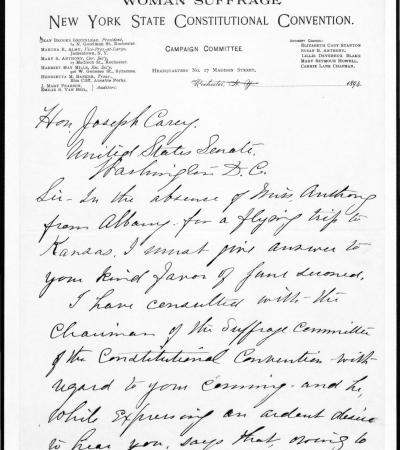 WOMAN SUFFRAGE
NEW YORK STATE CONSTITUTIONAL CONVENTION.
JEAN BROOKS GREENLEAF, President,
N. Goodman St., Rochester.
MARTHA R. ALMY, Vice-Pres.-at-Large,
Jamestown, N. Y.
MARY S. ANTHONY, Cor. Sec'y,
17 Madison St., Rochester.
HARRIET MAY MILLS, Rec. Sec'y,
W. Genesee St., Syracuse.
HENRIETTA M. BANKER, Treas.,
Elm Cliff, Ausable Forks.
J. MARY PEARSON,
EMILIE S. VAN BIEL,
Auditors.
CAMPAIGN COMMITTEE.
HEADQUARTERS NO. 17 MADISON STREET,
Rochester, N. Y. 1894.
ADVISORY COUNCIL:
ELIZABETH CADY STANTON
SUSAN B. ANTHONY,
LILLIE DEVEREUX BLAKE
MARY SEYMOUR HOWELL,
CARRIE LANE CHAPMAN.
Hon Joseph Carey.
United States Senate.
Washington D. C.
Sir - In the absence of Miss Anthony
from Albany - for a flying trip to
Kansas, I must give answer to
your kind favor of June second.
I have consulted with the
Chairman of the Suffrage Committee
of the Constitutional Convention - with
regard to your coming - and he,
while expressing an ardent desire
to hear you, says that, owing to